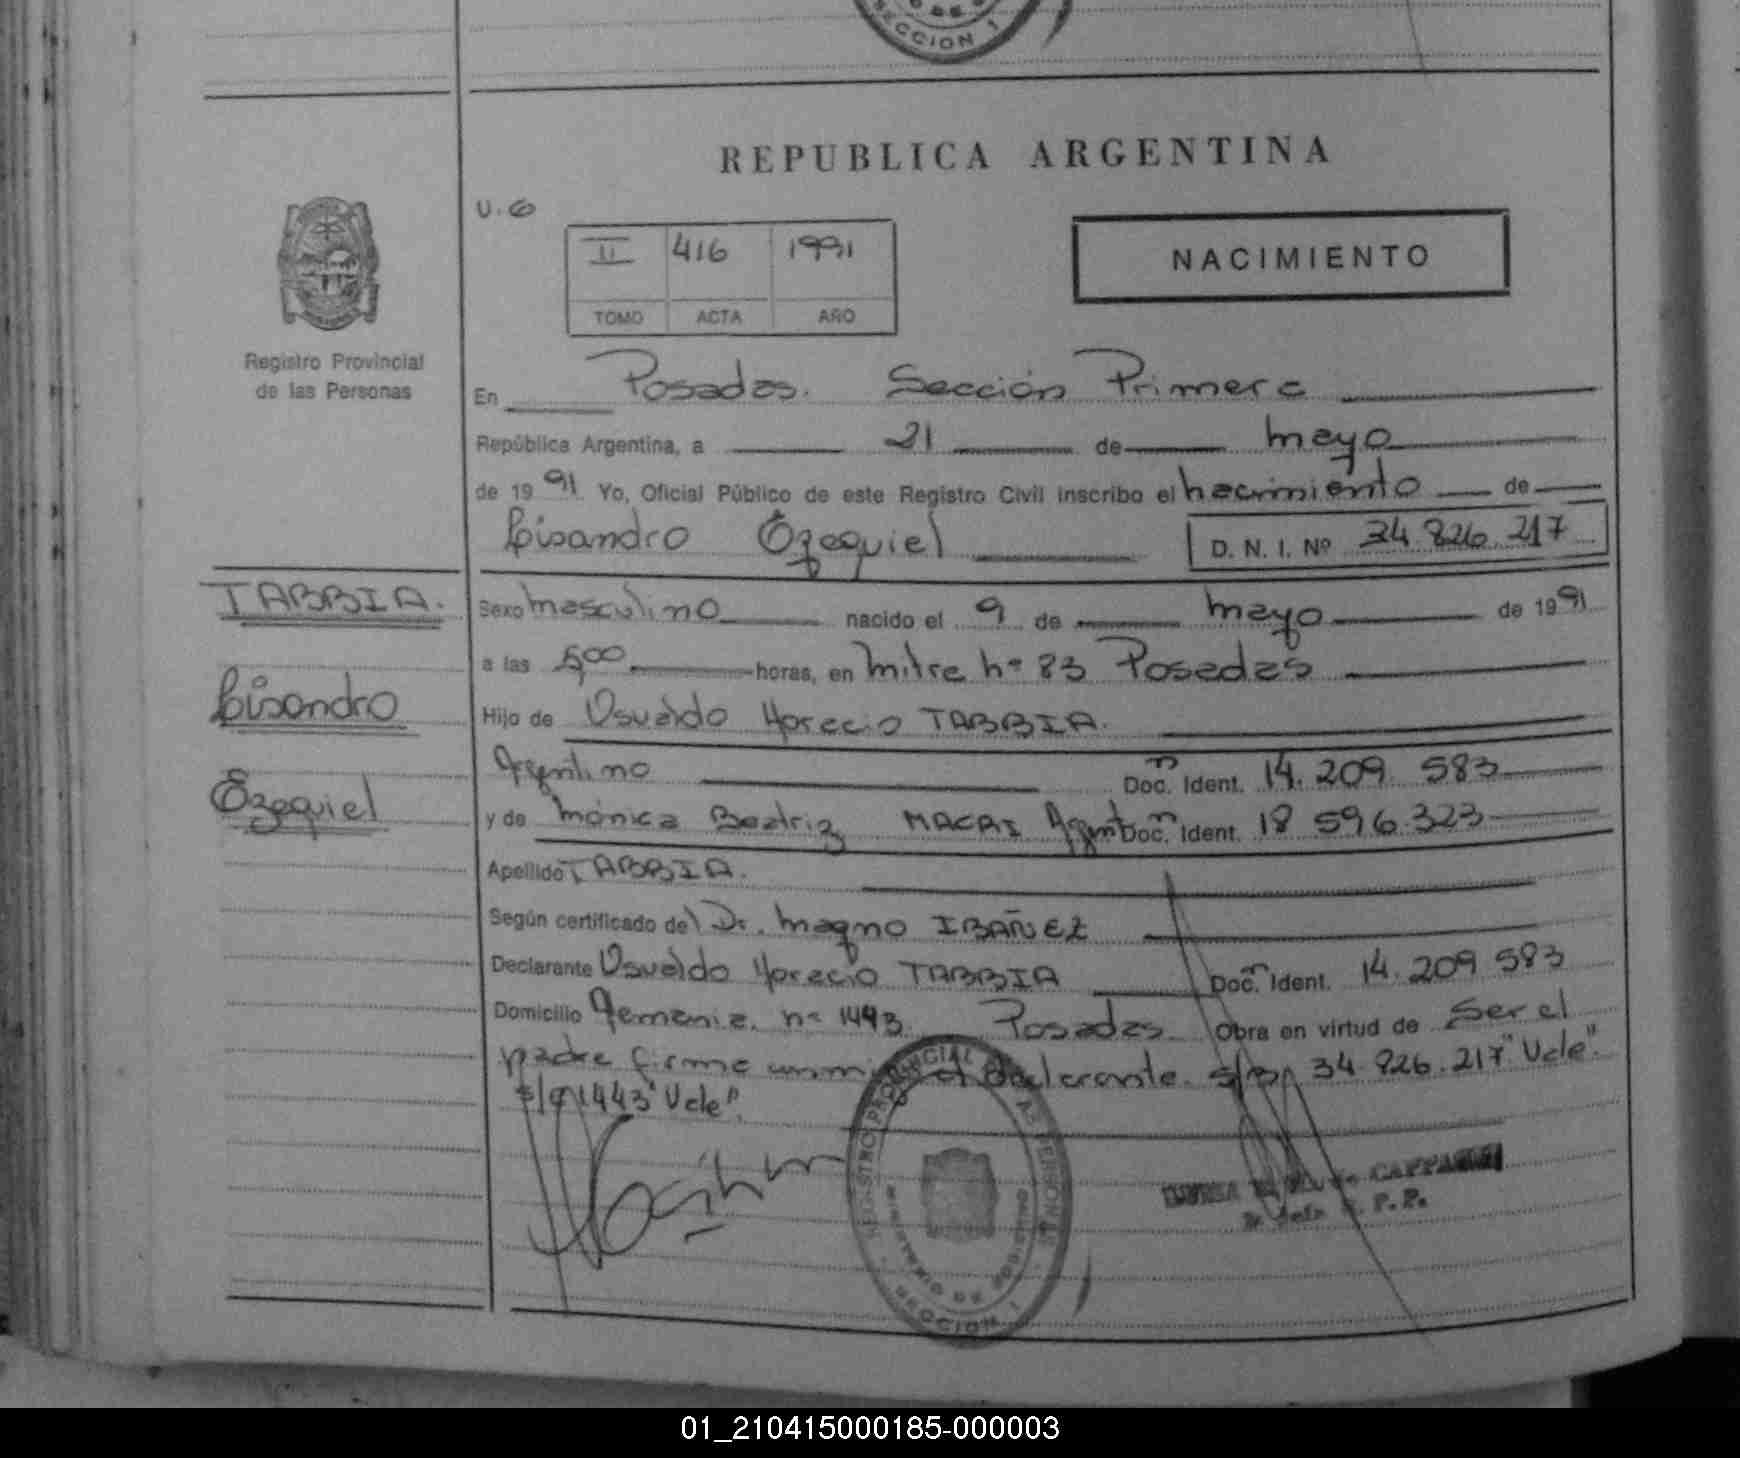 SECCION 1
REPUBLICA ARGENTINA
U.G
II 416 1991
TOMO ACTA AÑO
NACIMIENTO
Registro Provincial
de las Personas
En Posadas. Sección Primera
República Argentina, a 21 de mayo
de 1991 Yo, Oficial Público de este Registro Civil inscribo el nacimiento de
Lisandro Ezequiel D. N. I. Nº 34.826.217
TABBIA.
Lisandro
Ezequiel
Sexo masculino nacido el 9 de mayo de 1991
a las 5,00 horas, en Mitre nº 83 Posadas
Hijo de Osvaldo Horacio TABBIA.
Argentino Doc. Ident. 14.209.583
y de Mónica Beatriz MACRI Argent Doc. Ident. 18 596.323
Apellido TABBIA.
Según certificado del Dr. Magno IBAÑEZ
Declarante Osvaldo Horacio TABBIA Doc. Ident. 14.209 583
Domicilio Alemania. nº 1443 Posadas. Obra en virtud de Ser el
padre firma el declarante. s/r 34.826.217 "Vale".
s/r 1443 "Vale".
REGISTRO PROVINCIAL DE LAS PERSONAS
MINISTERIO DE GOBIERNO
SECCION 1
01_210415000185-000003